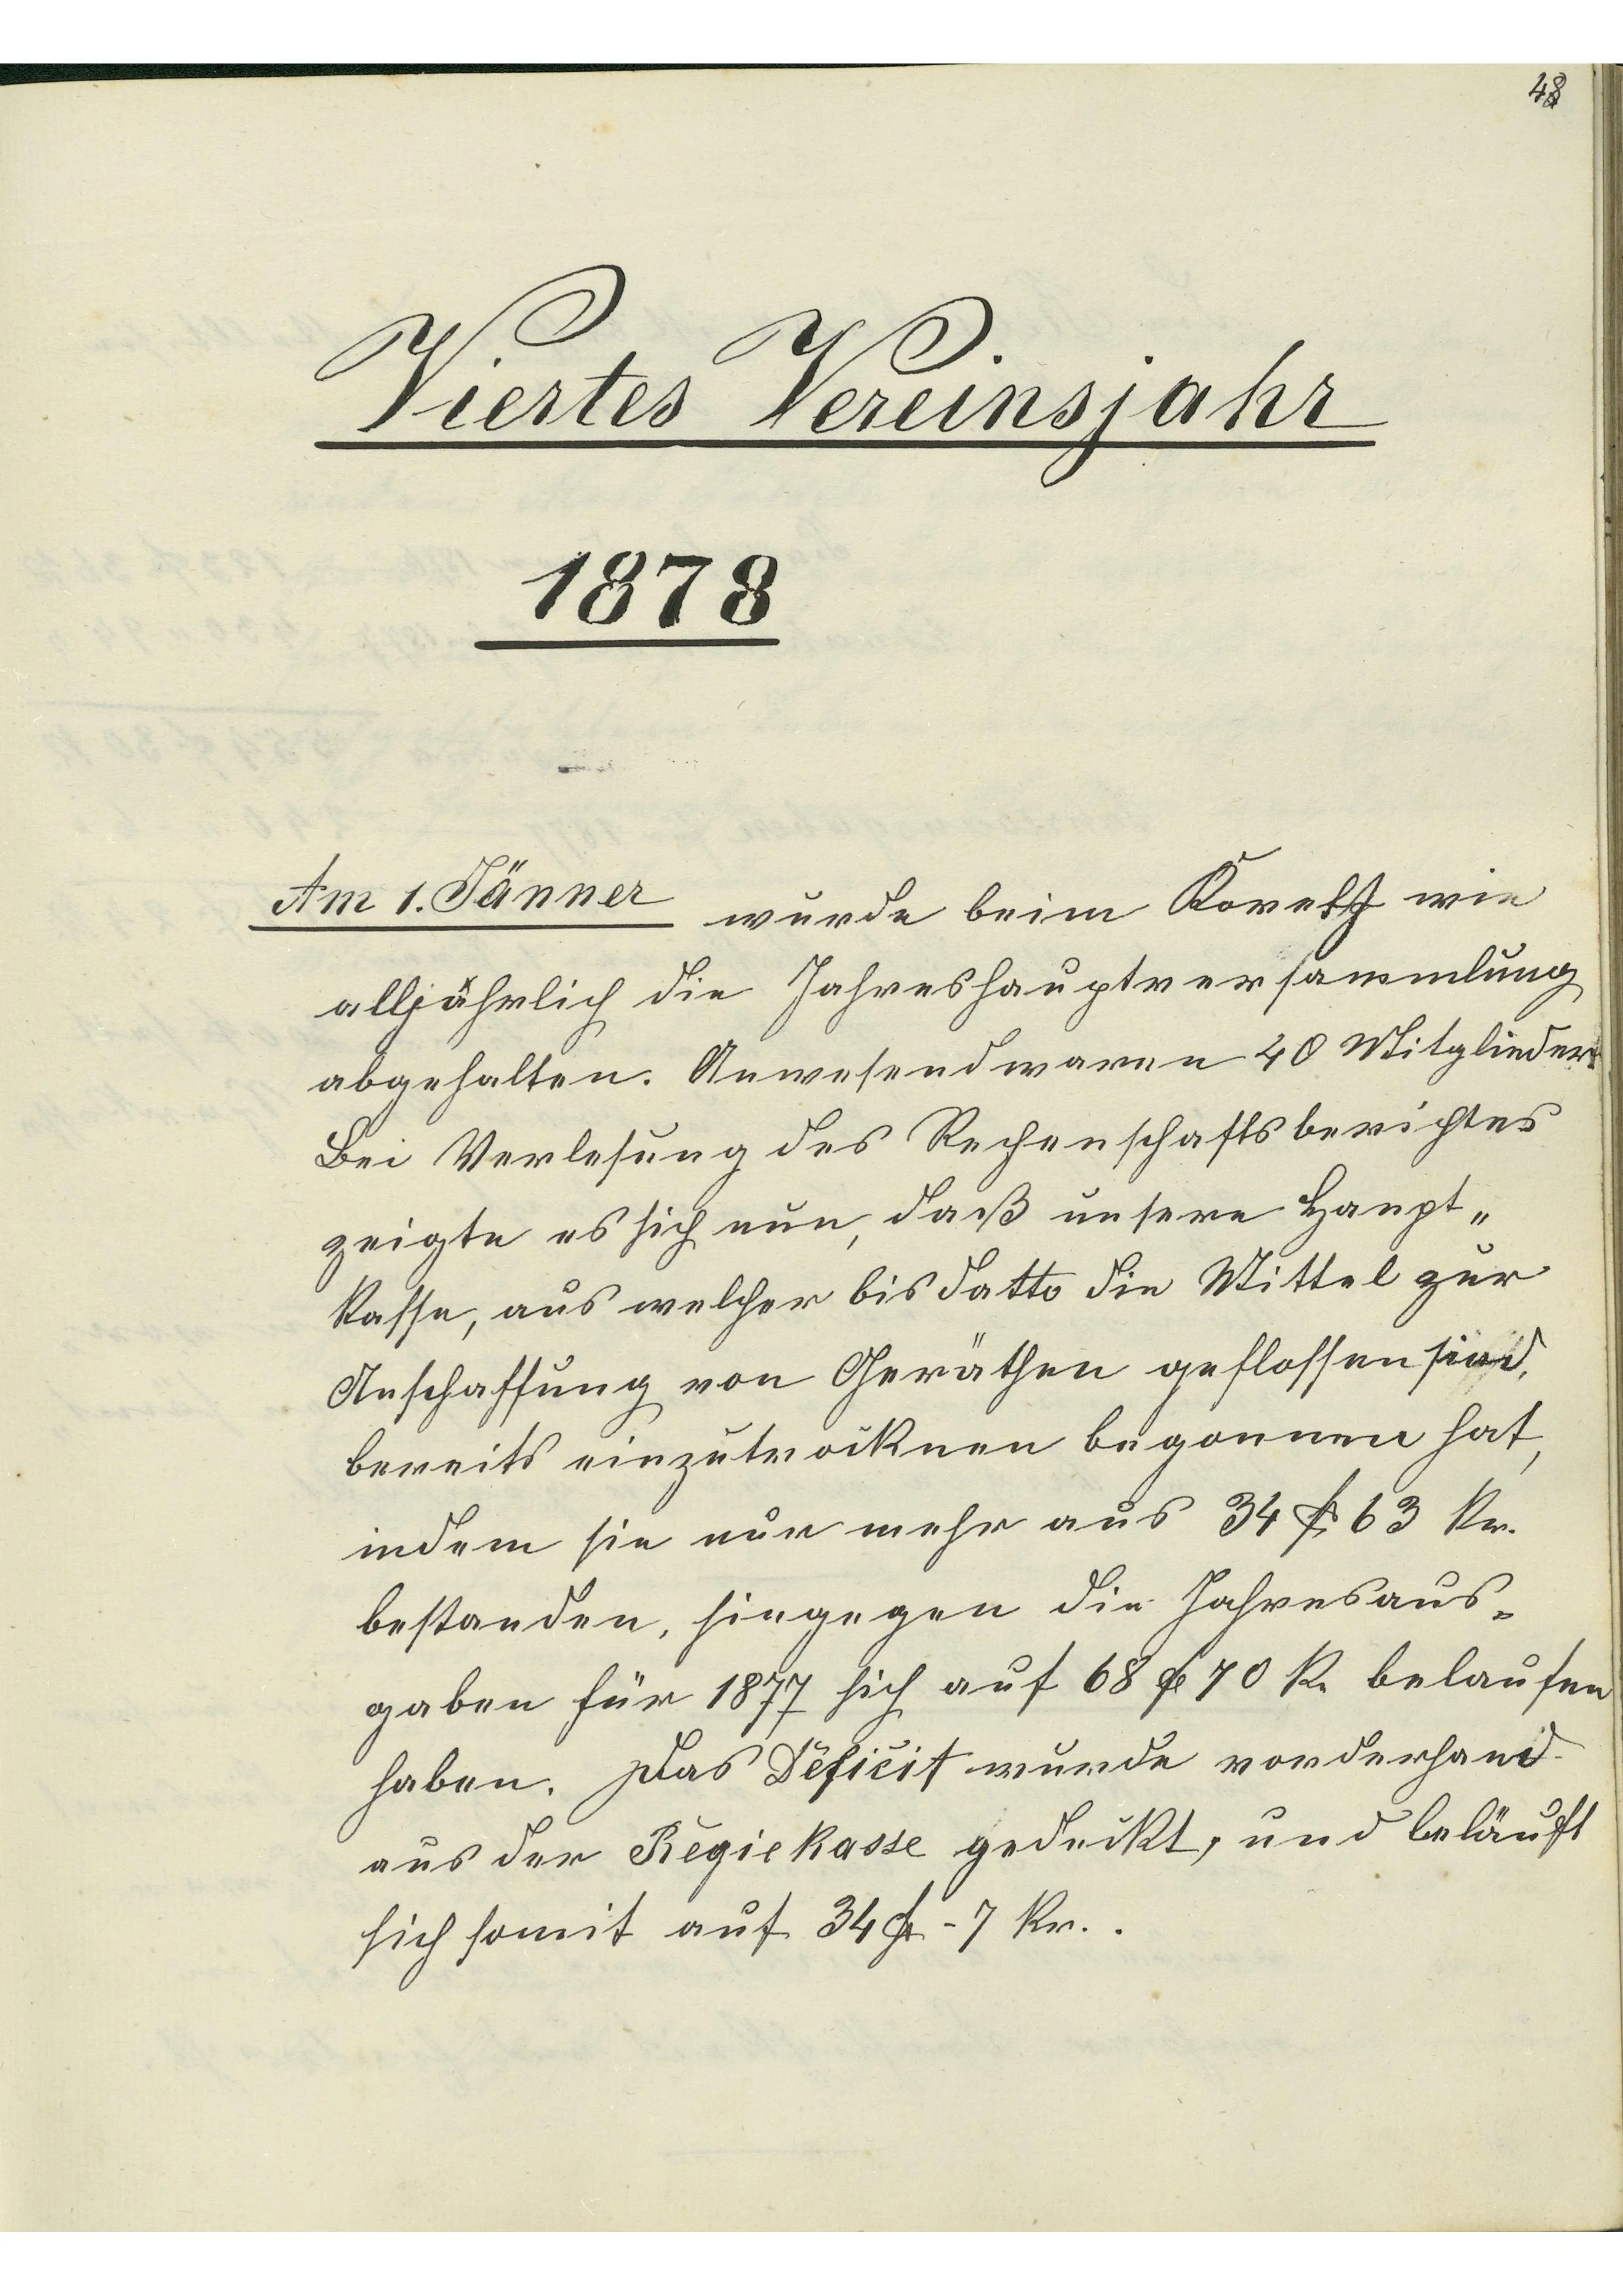 48
Viertes Vereinsjahr
1878
Am 1. Jänner wurde beim wie
alljährlich die Jahreshauptversammlung
abgehalten. Anwesend waren 40 Mitglieder.
Bei Verlesung des Rechenschaftsberichtes
zeigte es sich nun, daß unsere Haupt„
kasse, aus welcher bis datto die Mittel zur
Anschaffung von Geräthen geflossen sind,
bereits einzutrocknen begonnen hat,
indem sie nur mehr aus 34 fl 63 Kr.
bestanden, hingegen die Jahresaus=
gaben für 1877 sich auf 68 fl 70 K. belaufen
haben. Das Deficit wurde vorderhand
aus der Regiekasse gedeckt, und beläuft
sich somit auf 34 fl - 7 Kr..